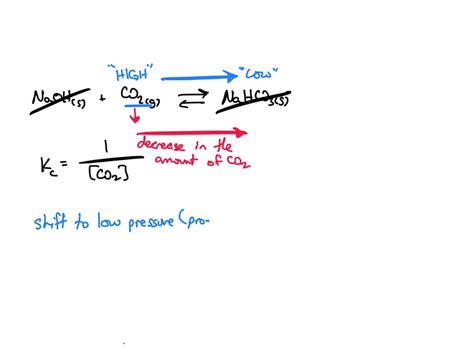 "HIGH" "LOW"
NaOH(s) + CO2(g) ⇌ NaHCO3(s)
decrease in the
amount of CO2
Kc = 1/[CO2]
shift to low pressure (pro